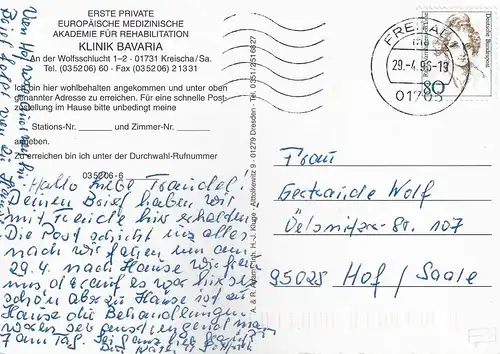 ERSTE PRIVATE
EUROPÄISCHE MEDIZINISCHE
AKADEMIE FÜR REHABILITATION
KLINIK BAVARIA
An der Wolfsschlucht 1–2 · 01731 Kreischa/Sa.
Tel. (035206) 60 · Fax (035206) 21331
Ich bin hier wohlbehalten angekommen und unter oben
genannter Adresse zu erreichen. Für eine schnelle Post-
zustellung im Hause bitte unbedingt meine
Stations-Nr. und Zimmer-Nr.
angeben.
Zu erreichen bin ich unter der Durchwahl-Rufnummer
035206-6
Hallo liebe Traudel!
Deinen Brief haben wir
mit Freude hier erhalten
Die Post schickt uns alles
nach wir fahren nun am
29.4. nach Hause wir freuen
uns darauf es war hier sehr
schön aber zu Hause ist zu
Hause die Behandlungen
waren sehr
7 am Tag.
H. J. Kluge · Altnickern 9 · 01279 Dresden · Tel. 0351/2516827
FREITAL 1
29.-4.96-19
01705
Deutsche Bundespost
80
Frau
Gertraude Wolf
Oelsnitzer-Str. 107
95028 Hof / Saale